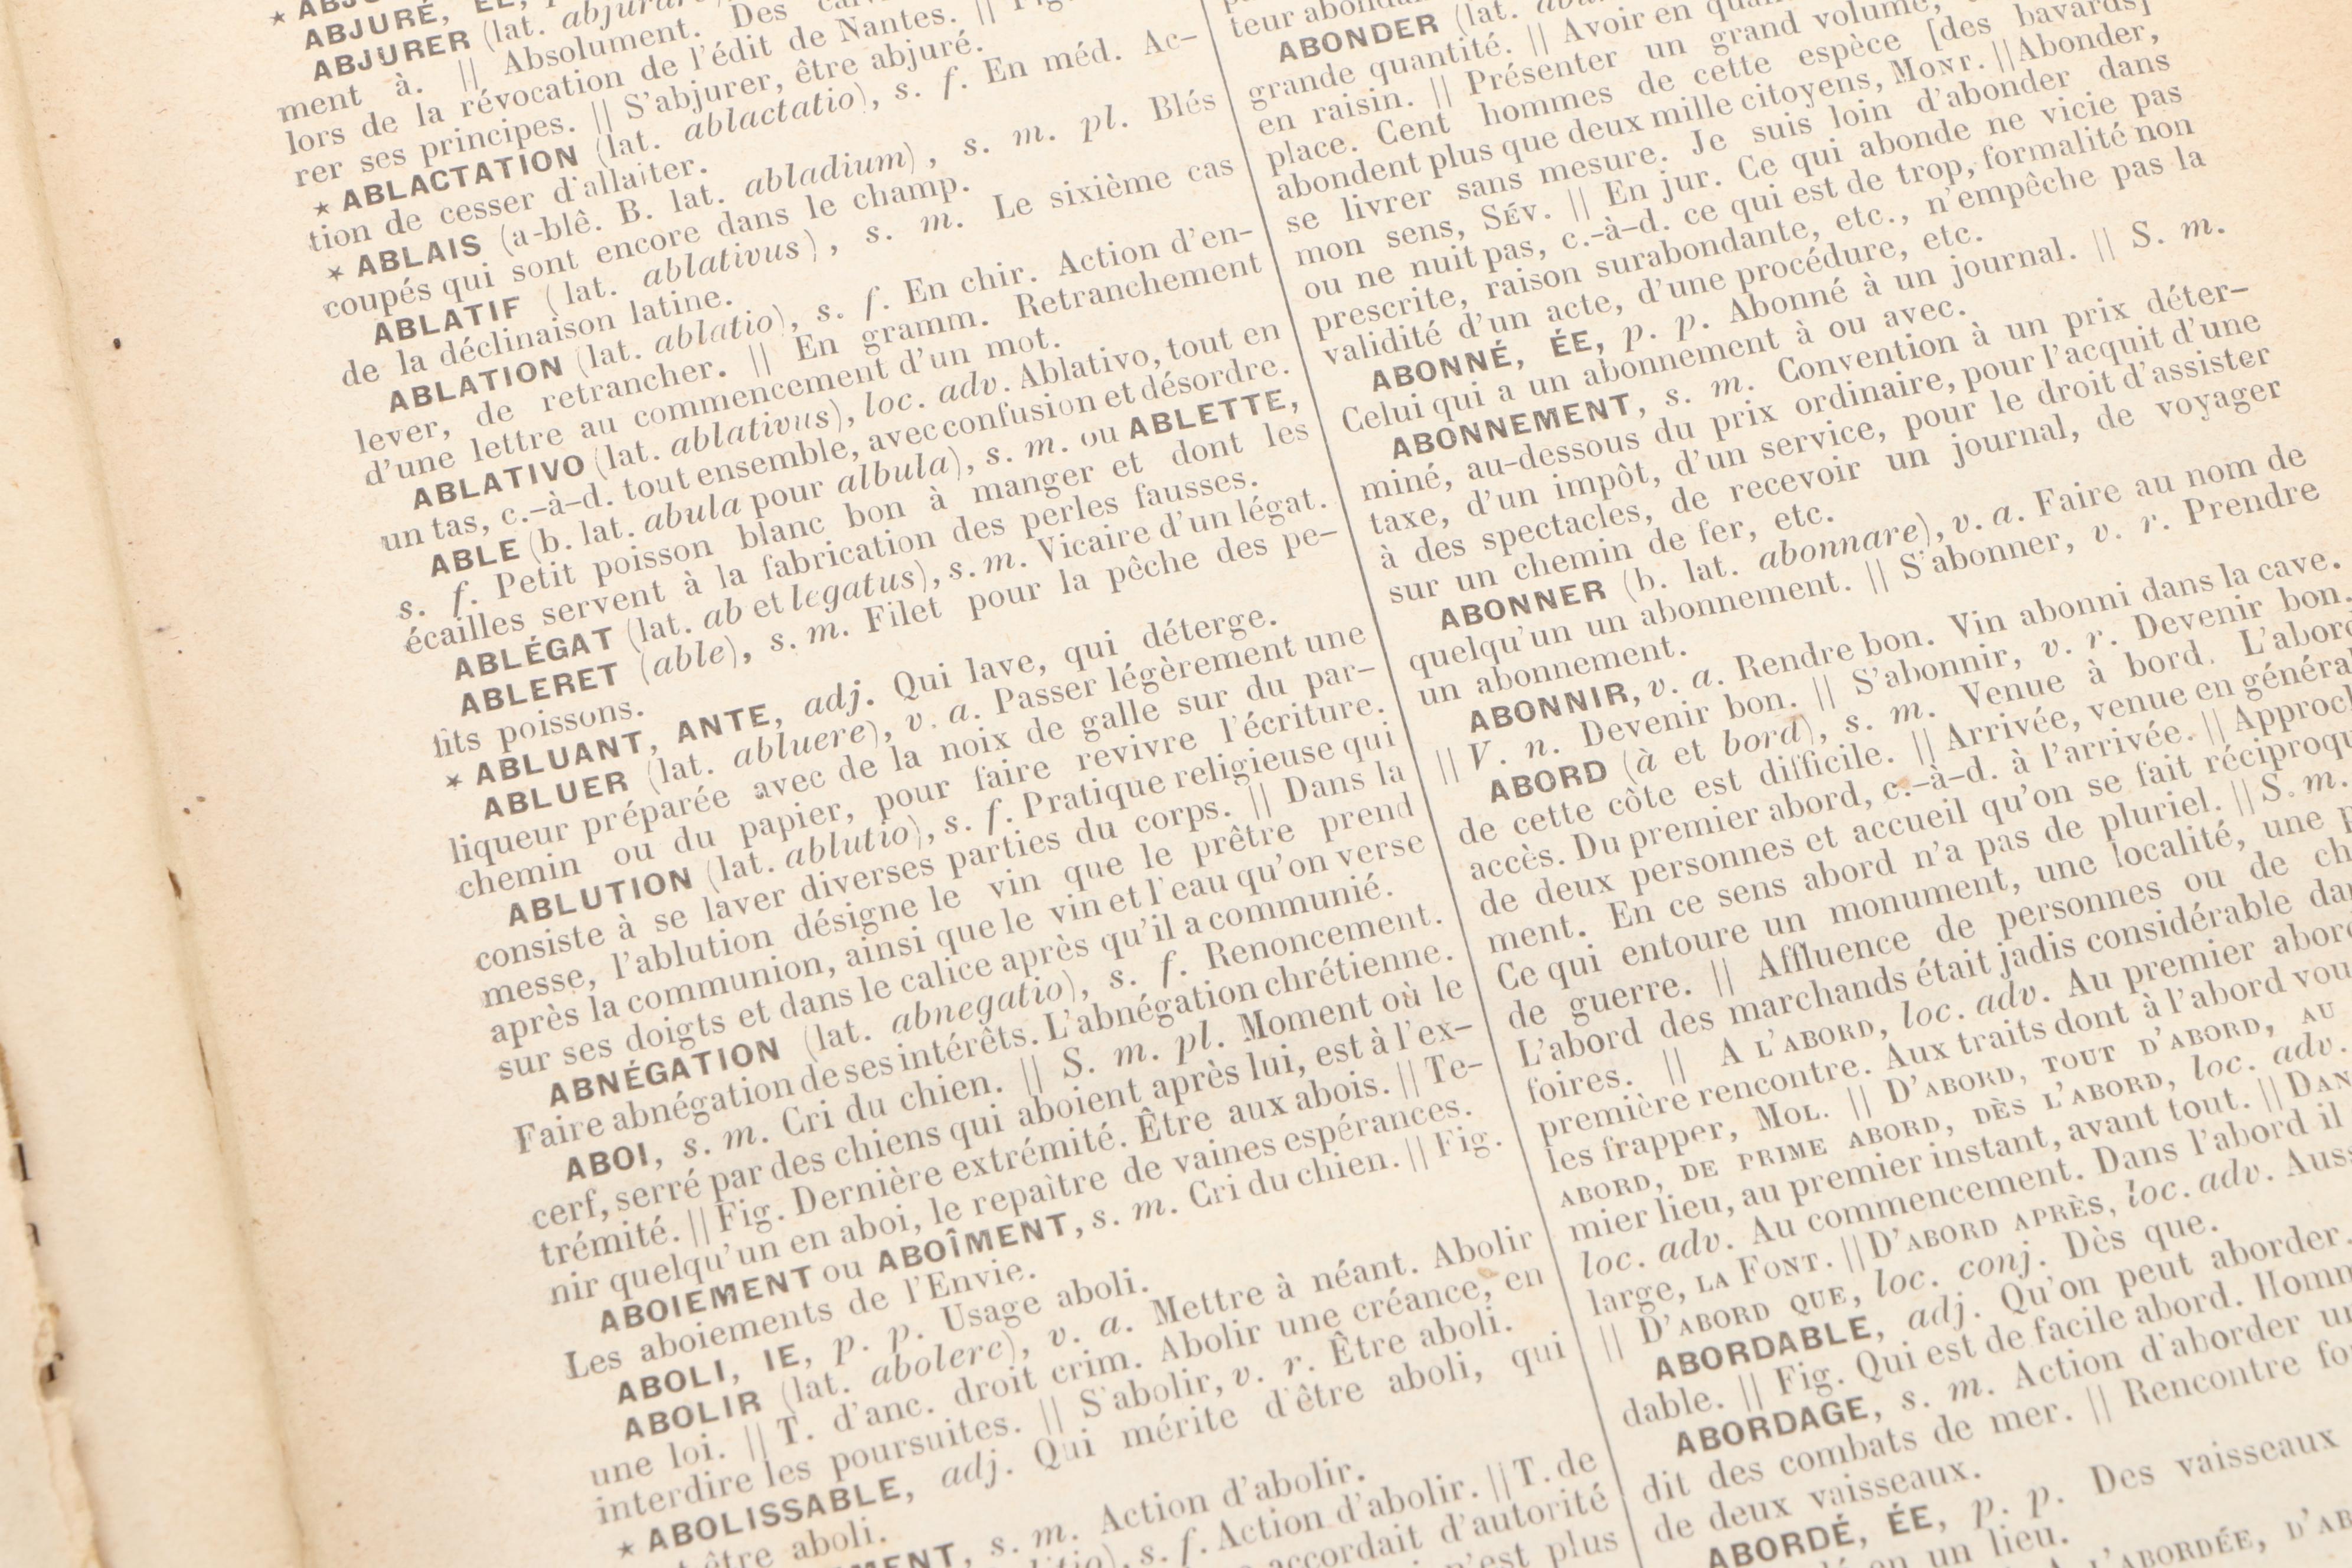 ABJURÉ, ÉE,
ABJURER (lat. abjurare)
ment à. || Absolument. Des
lors de la révocation de l'édit de Nantes. ||
rer ses principes. || S'abjurer, être abjuré.
* ABLACTATION (lat. ablactatio), s. f. En méd. Ac-
tion de cesser d'allaiter.
* ABLAIS (a-blê. B. lat. abladium), s. m. pl. Blés
coupés qui sont encore dans le champ.
ABLATIF (lat. ablativus), s. m. Le sixième cas
de la déclinaison latine.
ABLATION (lat. ablatio), s. f. En chir. Action d'en-
lever, de retrancher. || En gramm. Retranchement
d'une lettre au commencement d'un mot.
ABLATIVO (lat. ablativus), loc. adv. Ablativo, tout en
un tas, c.-à-d. tout ensemble, avec confusion et désordre.
ABLE (b. lat. abula pour albula), s. m. ou ABLETTE,
s. f. Petit poisson blanc bon à manger et dont les
écailles servent à la fabrication des perles fausses.
ABLÉGAT (lat. ab et legatus), s. m. Vicaire d'un légat.
ABLERET (able), s. m. Filet pour la pêche des pe-
tits poissons.
* ABLUANT, ANTE, adj. Qui lave, qui déterge.
ABLUER (lat. abluere), v. a. Passer légèrement une
liqueur préparée avec de la noix de galle sur du par-
chemin ou du papier, pour faire revivre l'écriture.
ABLUTION (lat. ablutio), s. f. Pratique religieuse qui
consiste à se laver diverses parties du corps. || Dans la
messe, l'ablution désigne le vin que le prêtre prend
après la communion, ainsi que le vin et l'eau qu'on verse
sur ses doigts et dans le calice après qu'il a communié.
ABNÉGATION (lat. abnegatio), s. f. Renoncement.
Faire abnégation de ses intérêts. L'abnégation chrétienne.
ABOI, s. m. Cri du chien. || S. m. pl. Moment où le
cerf, serré par des chiens qui aboient après lui, est à l'ex-
trémité. || Fig. Dernière extrémité. Être aux abois. || Te-
nir quelqu'un en aboi, le repaître de vaines espérances.
ABOIEMENT ou ABOÎMENT, s. m. Cri du chien. || Fig.
Les aboiements de l'Envie.
ABOLI, IE, p. p. Usage aboli.
ABOLIR (lat. abolere), v. a. Mettre à néant. Abolir
une loi. || T. d'anc. droit crim. Abolir une créance, en
interdire les poursuites. || S'abolir, v. r. Être aboli.
* ABOLISSABLE, adj. Qui mérite d'être aboli, qui
être aboli.
s. m. Action d'abolir.
s. f. Action d'abolir. || T. de
accordait d'autorité
n'est plus
teur
ABONDER (lat.
grande quantité. || Avoir en
en raisin. || Présenter un grand volume,
place. Cent hommes de cette espèce [des bavards]
abondent plus que deux mille citoyens, MONT. || Abonder,
se livrer sans mesure. Je suis loin d'abonder dans
mon sens, SÉV. || En jur. Ce qui abonde ne vicie pas
ou ne nuit pas, c.-à-d. ce qui est de trop, formalité non
prescrite, raison surabondante, etc., n'empêche pas la
validité d'un acte, d'une procédure, etc.
ABONNÉ, ÉE, p. p. Abonné à un journal. || S. m.
Celui qui a un abonnement à ou avec.
ABONNEMENT, s. m. Convention à un prix déter-
miné, au-dessous du prix ordinaire, pour l'acquit d'une
taxe, d'un impôt, d'un service, pour le droit d'assister
à des spectacles, de recevoir un journal, de voyager
sur un chemin de fer, etc.
ABONNER (b. lat. abonnare), v. a. Faire au nom de
quelqu'un un abonnement. || S'abonner, v. r. Prendre
un abonnement.
ABONNIR, v. a. Rendre bon. Vin abonni dans la cave.
|| V. n. Devenir bon. || S'abonnir, v. r. Devenir bon.
ABORD (à et bord), s. m. Venue à bord. L'abord
de cette côte est difficile. || Arrivée, venue en général
accès. Du premier abord, c.-à-d. à l'arrivée. || Approch
de deux personnes et accueil qu'on se fait réciproqu
ment. En ce sens abord n'a pas de pluriel. || S. m.
Ce qui entoure un monument, une localité, une p
de guerre. || Affluence de personnes ou de ch
L'abord des marchands était jadis considérable da
foires. || A L'ABORD, loc. adv. Au premier abord
première rencontre. Aux traits dont à l'abord vou
les frapper, MOL. || D'ABORD, TOUT D'ABORD, AU
ABORD, DE PRIME ABORD, DÈS L'ABORD, loc. adv.
mier lieu, au premier instant, avant tout. || DAN
loc. adv. Au commencement. Dans l'abord il
large, LA FONT. || D'ABORD APRÈS, loc. adv. Auss
|| D'ABORD QUE, loc. conj. Dès que.
ABORDABLE, adj. Qu'on peut aborder.
dable. || Fig. Qui est de facile abord. Homm
ABORDAGE, s. m. Action d'aborder un
dit des combats de mer. || Rencontre fo
de deux vaisseaux.
ABORDÉ, ÉE, p. p. Des vaisseaux
en un lieu.
L'ABORDÉE, D'AB